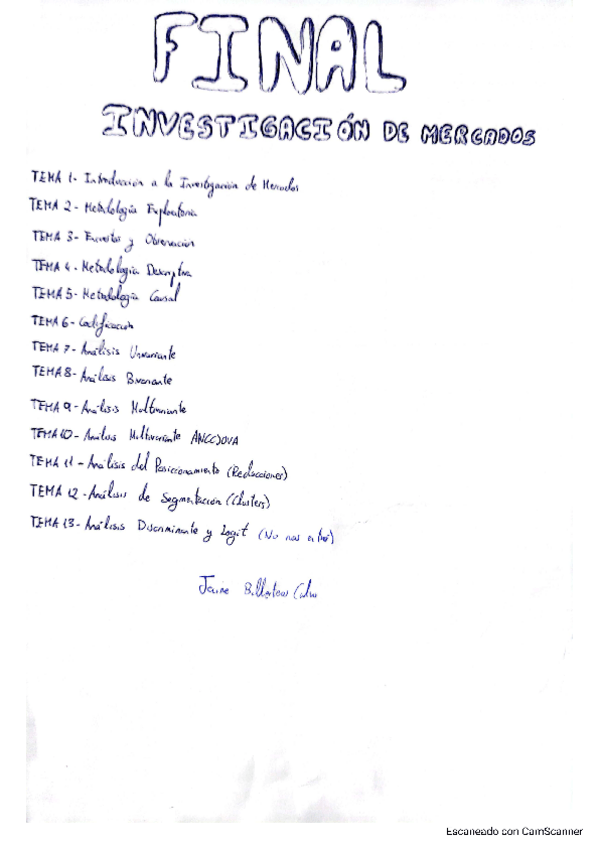 FINAL
INVESTIGACIÓN DE MERCADOS
TEMA 1- Introducción a la Investigación de Mercados
TEMA 2- Metodología Exploratoria
TEMA 3- Encuestas y Observación
TEMA 4- Metodología Descriptiva
TEMA 5- Metodología Causal
TEMA 6- Codificación
TEMA 7- Análisis Univariante
TEMA 8- Análisis Bivariante
TEMA 9- Análisis Multivariante
TEMA 10- Análisis Multivariante AN(C)OVA
TEMA 11- Análisis del Posicionamiento (Reducciones)
TEMA 12- Análisis de Segmentación (Clusters)
TEMA 13- Análisis Discriminante y Logit (No nos entró)
Escaneado con CamScanner